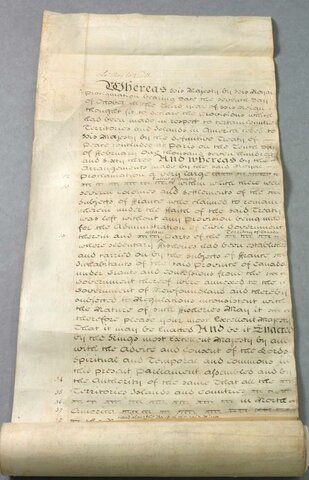 Whereas His Majesty by His Royal
Proclamation bearing Date the seventh Day
of October in the third year of His Reign
thought fit to declare the Provisions which
had been made in respect to certain Countries
Territories and Islands in America ceded to
His Majesty by the definitive Treaty of
Peace concluded at Paris on the tenth Day
of February One thousand seven hundred
and sixty three And whereas by the
Arrangements made by the said Royal
Proclamation a very large
within which there were
several Colonies and Settlements of the
Subjects of France who claimed to remain
therein under the Faith of the said Treaty
was left without any Provision being made
for the Administration of Civil Government
therein and Parts of the
where sedentary Fisheries had been established
and carried on by the Subjects of France
Inhabitants of the said Province of Canada
under Grants and Concessions from the
Government thereof were annexed to the
Government of Newfoundland and thereby
subjected to Regulations inconsistent with
the Nature of such Fisheries May it
therefore please your most Excellent Majesty
That it may be Enacted And be it Enacted
by the Kings most Excellent Majesty by and
with the Advice and Consent of the Lords
Spiritual and Temporal and Commons in
this present Parliament assembled and by
34 the Authority of the same That all the
35 Territories Islands and Countries in
36 in North
37 America